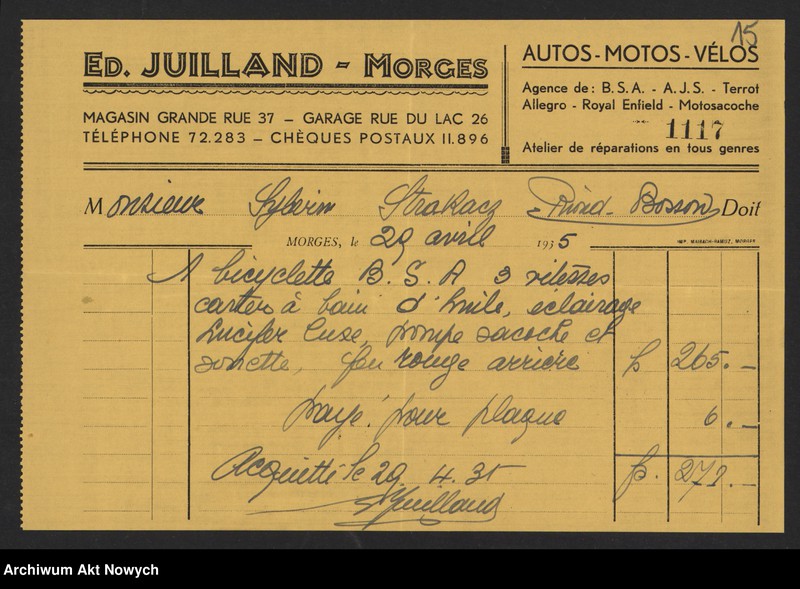 15
ED. JUILLAND - MORGES
MAGASIN GRANDE RUE 37 – GARAGE RUE DU LAC 26
TÉLÉPHONE 72.283 – CHÈQUES POSTAUX II.896
AUTOS - MOTOS - VÉLOS
Agence de: B.S.A. - A.J.S. - Terrot
Allegro - Royal Enfield - Motosacoche
1117
Atelier de réparations en tous genres
Monsieur Sylwin Strakacz Riond-Bosson Doit
MORGES, le 29 avril 1935
IMP. MABACH-RAMUZ, MORGES
1 bicyclette B.S.A 3 vitesses
carter à bain d'huile, eclairage
Lucifer luxe, pompe sacoche et
sonette, feu rouge arriere fr 265.—
payé pour plaque 6.—
Acquitté le 29.4.35 fr. 271.—
Juilland
Archiwum Akt Nowych